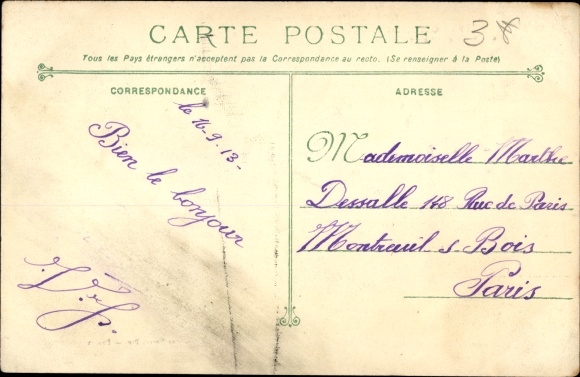 CARTE POSTALE
Tous les Pays étrangers n'acceptent pas la Correspondance au recto. (Se renseigner à la Poste)
CORRESPONDANCE
le 16-9-13-
Bien le bonjour
ADRESSE
Mademoiselle Marthe
Dessalle 148 Rue de Paris
Montreuil s Bois
Paris